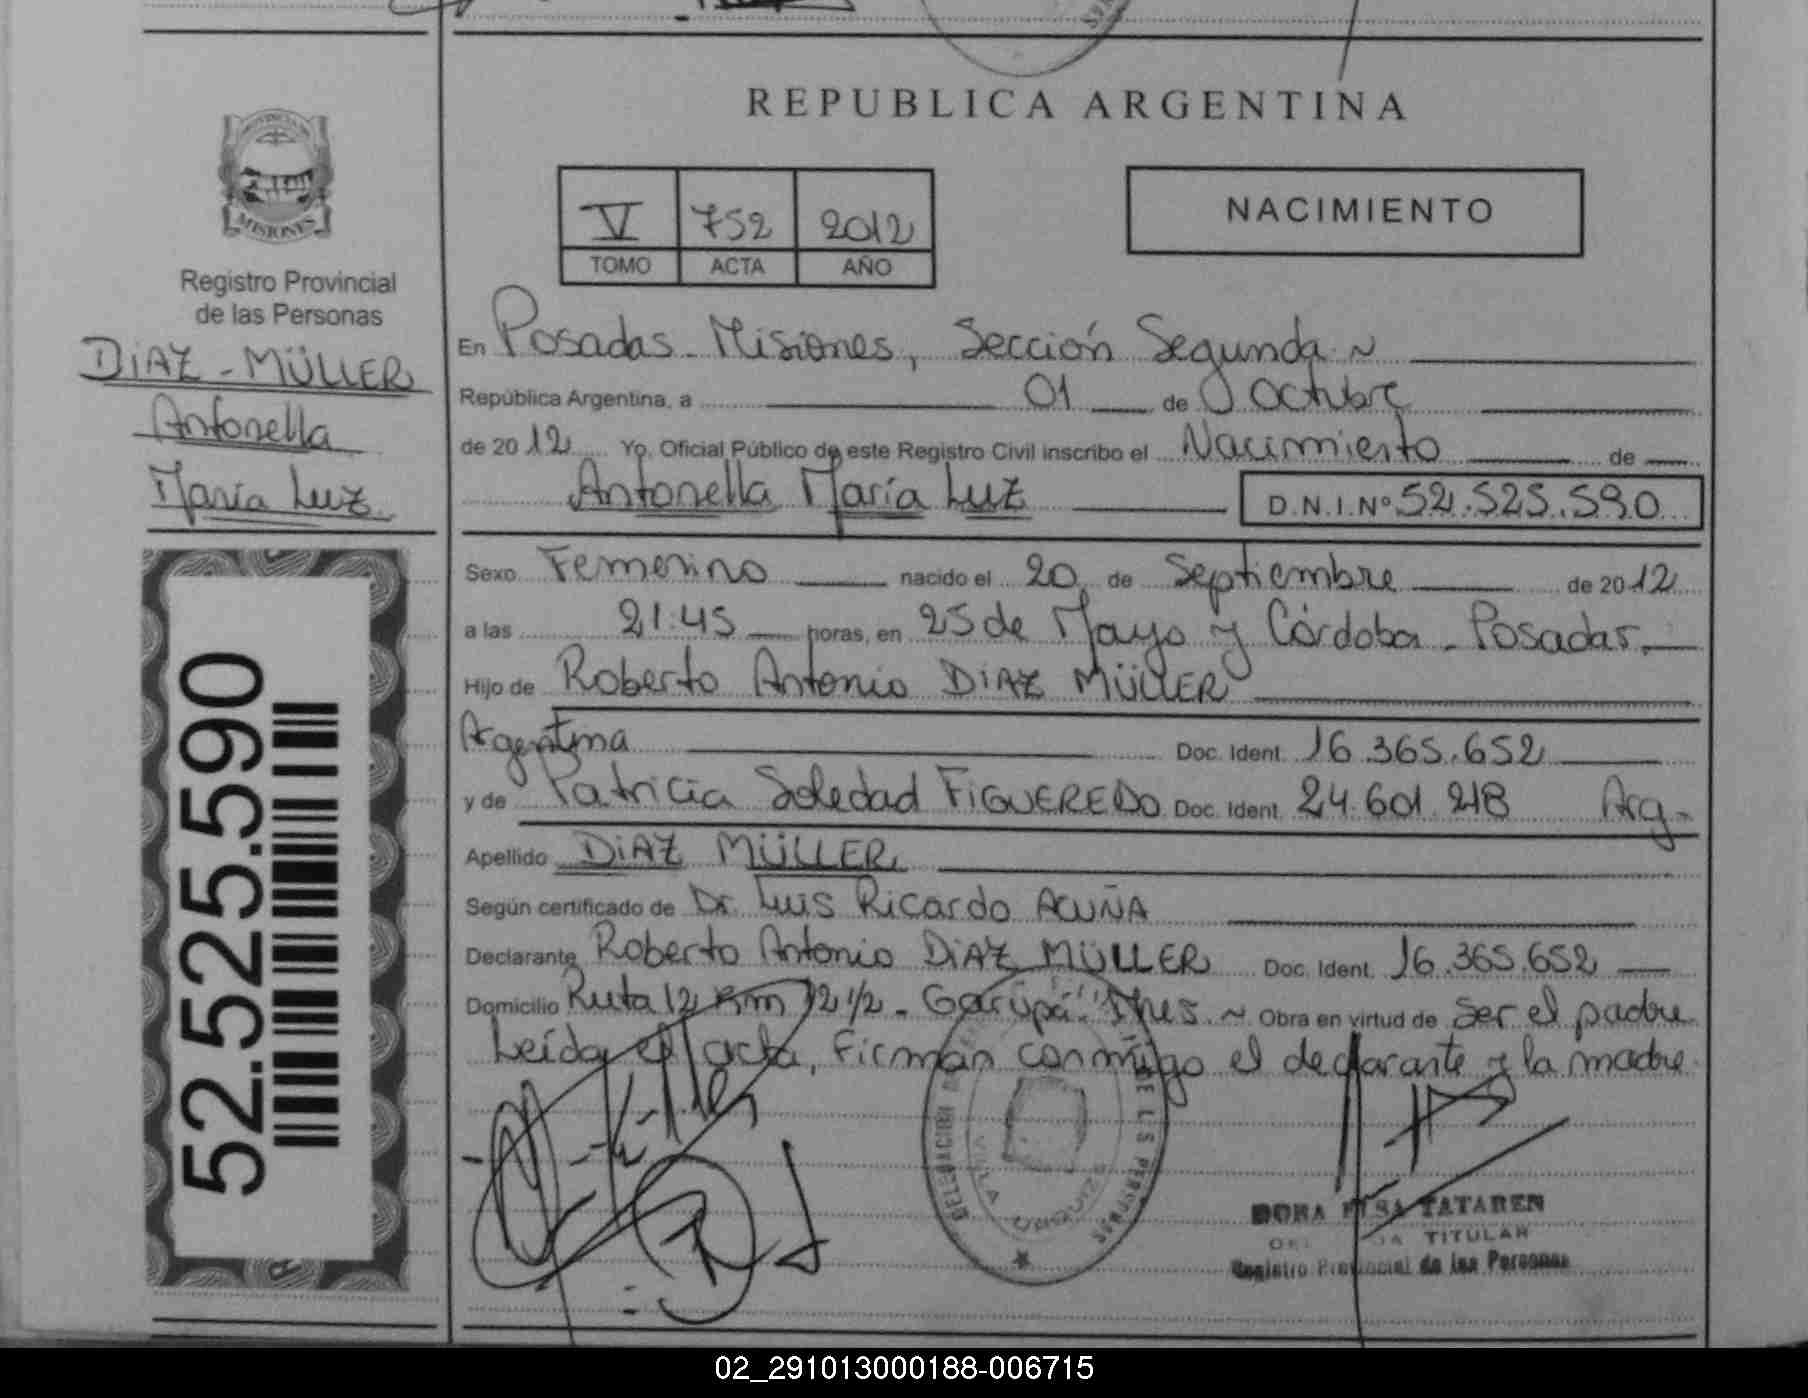 REPUBLICA ARGENTINA
PROVINCIA DE
MISIONES
Registro Provincial
de las Personas
DIAZ - MÜLLER
Antonella
María Luz
52.525.590
V 752 2012
TOMO ACTA AÑO
NACIMIENTO
En Posadas - Misiones, Sección Segunda ~
República Argentina, a 01 de Octubre
de 2012 Yo, Oficial Público de este Registro Civil inscribo el Nacimiento de
Antonella María Luz D.N.I.Nº 52.525.590
Sexo Femenino nacido el 20 de Septiembre de 2012
a las 21:45 horas, en 25 de Mayo y Córdoba - Posadas.
Hijo de Roberto Antonio DIAZ MÜLLER
Argentina Doc. Ident. 16.365.652
y de Patricia Soledad FIGUEREDO Doc. Ident. 24.601.218 Arg-
Apellido DIAZ MÜLLER
Según certificado de Dr. Luis Ricardo ACUÑA
Declarante Roberto Antonio DIAZ MÜLLER Doc. Ident. 16.365.652
Domicilio Ruta 12 Km 12 1/2 - Garupá - Mnes ~ Obra en virtud de ser el padre
Leída el acta, Firman conmigo el declarante y la madre.
DELEGACION DE LAS PERSONAS
VILLA URQUIZA
DORA ELSA TATAREN
TITULAR
Registro Provincial de las Personas
02_291013000188-006715